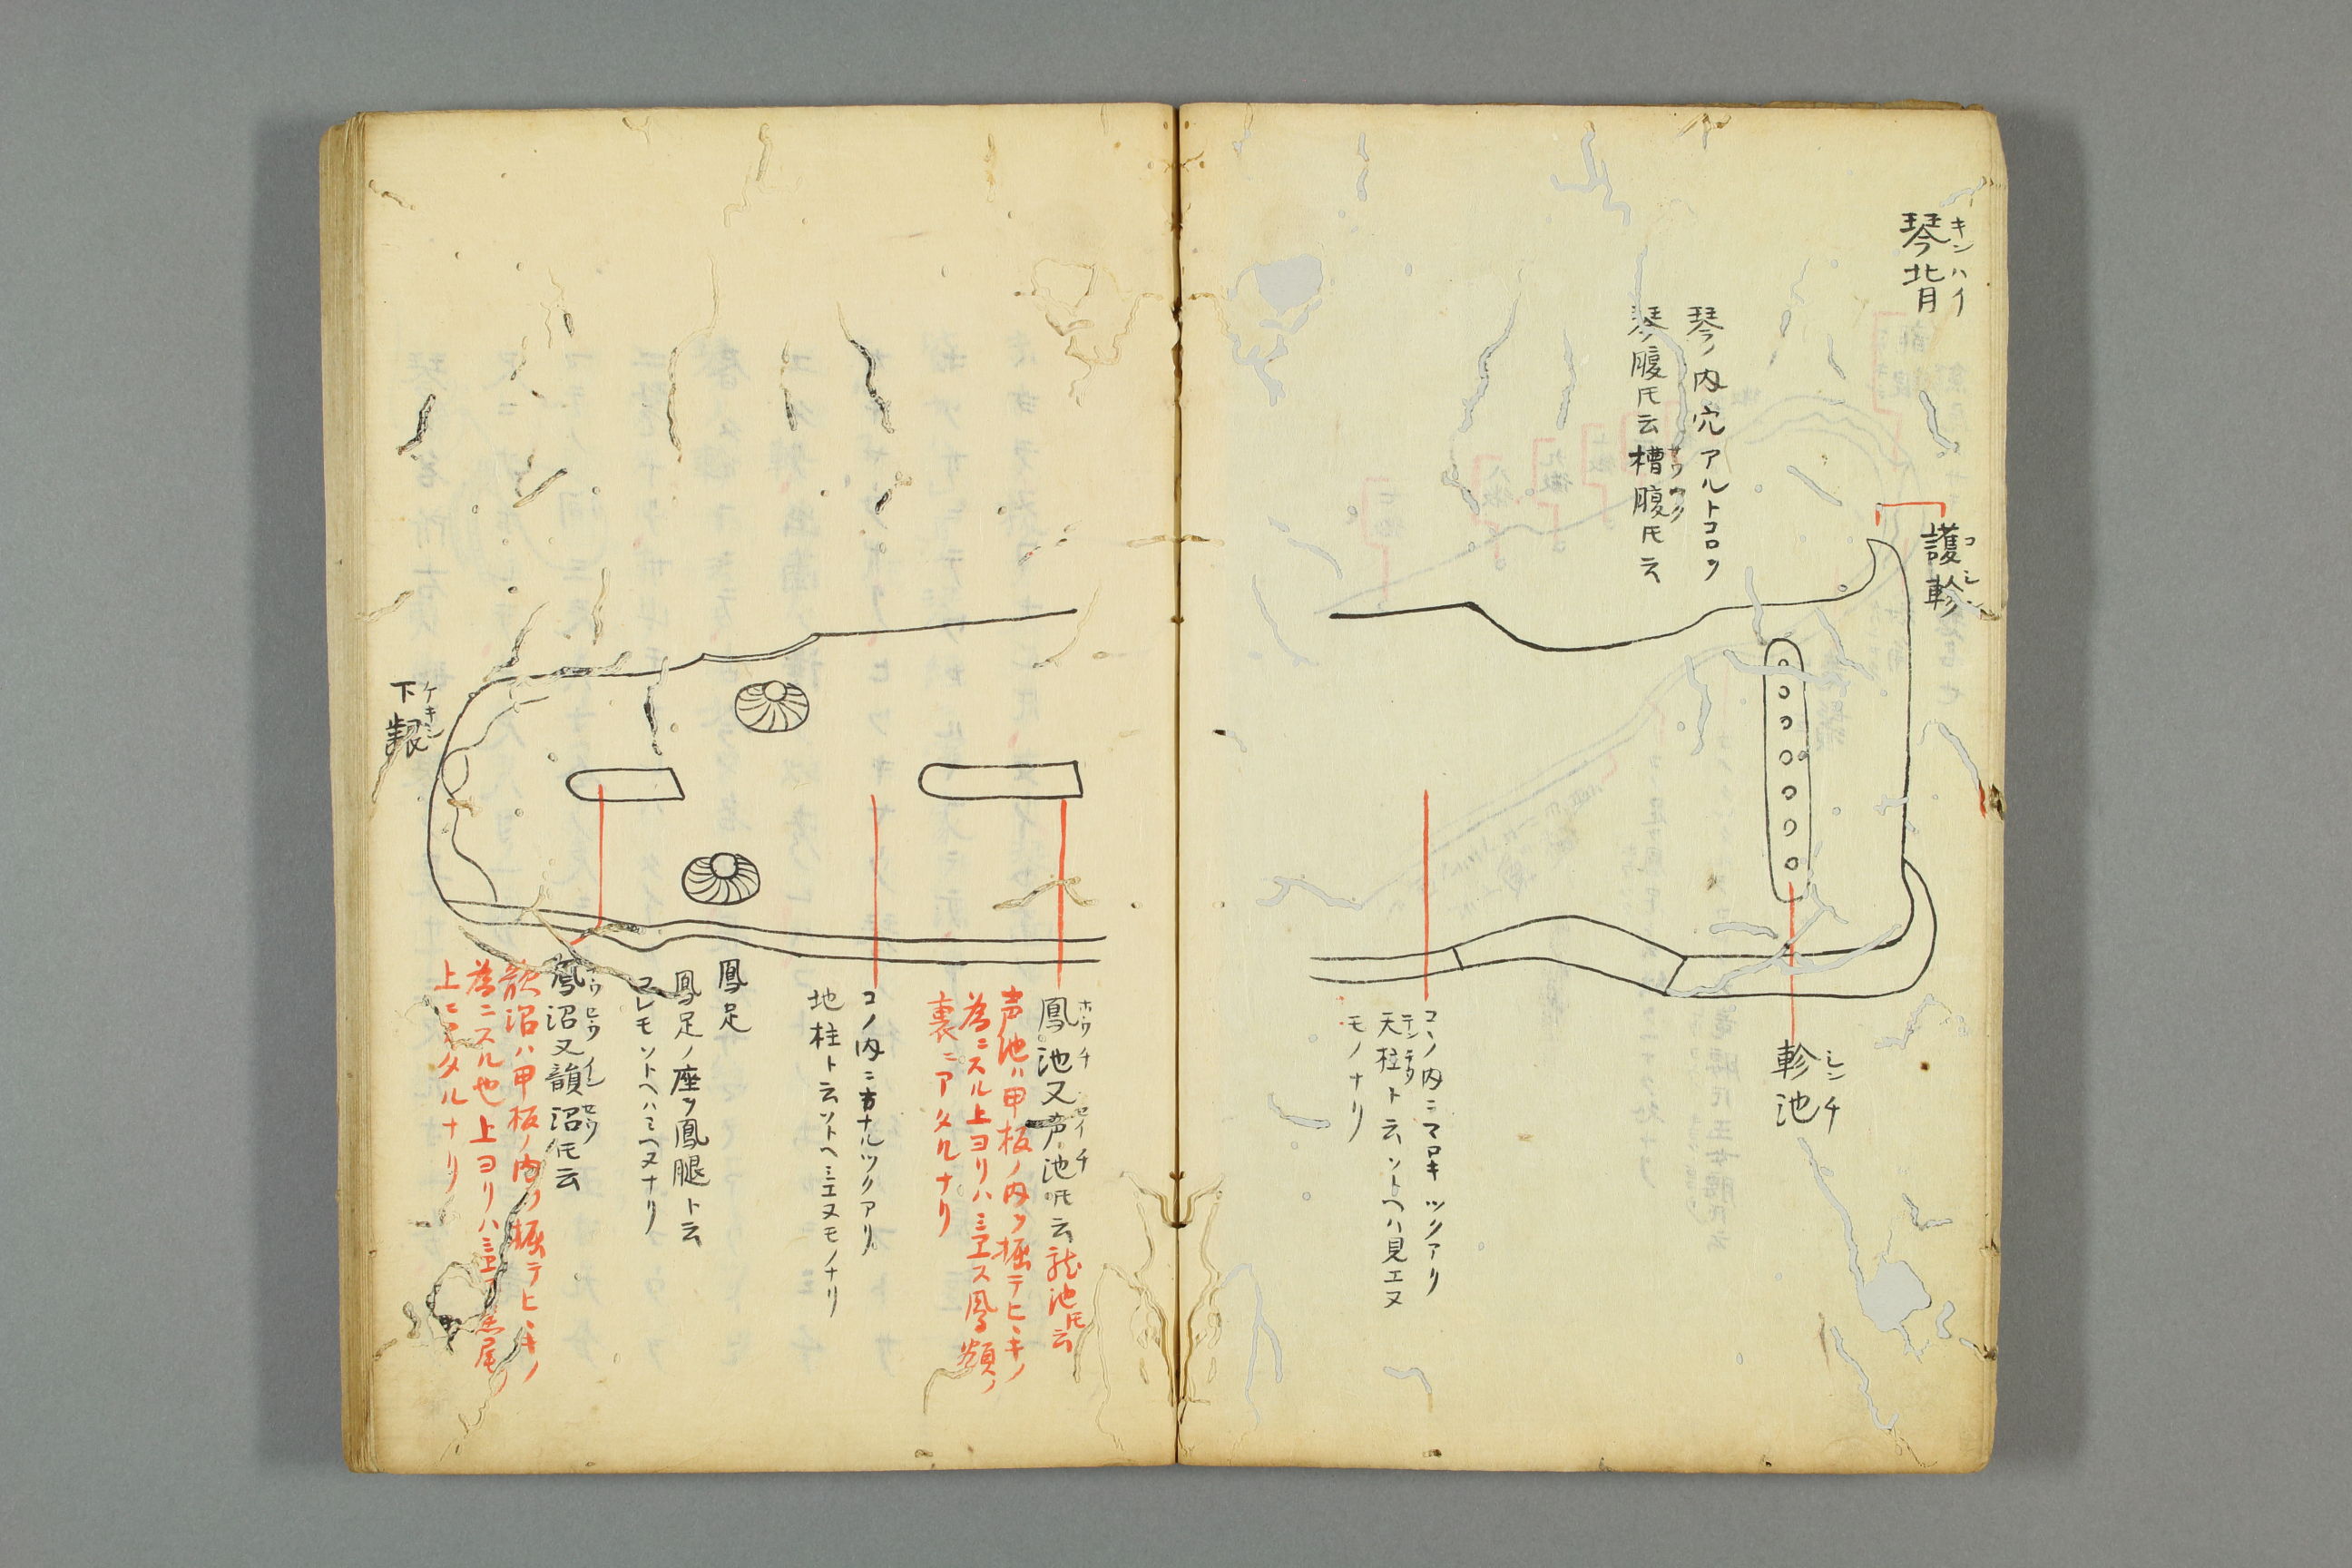 琴背
キンハイ
護軫
コシン
琴ノ内穴アルトコロヲ
琴腹𪜈云槽腹𪜈云
軫池
シンチ
コノ内ニマロキツクアリ
天柱ト云ソトヘハ見エヌ
モノナリ
鳳池又声池𪜈云龍池𪜈云
ホウチ セイチ
声池ハ甲板ノ内ヲ掘テヒヽキノ
為ニスル上ヨリハミエス鳳額ノ
裏ニアタルナリ
コノ内ニ方ナルツクアリ
地柱ト云ソトヘミエヌモノナリ
鳳足
鳳足ノ座ヲ鳳腿ト云
コレモソトヘハミヘヌナリ
鳳沼又韻沼𪜈云
韻沼ハ甲板ノ内ヲ掘テヒヽキノ
為ニスル也上ヨリハミエス焦尾ノ
上ニアタルナリ
下齦
ケキン